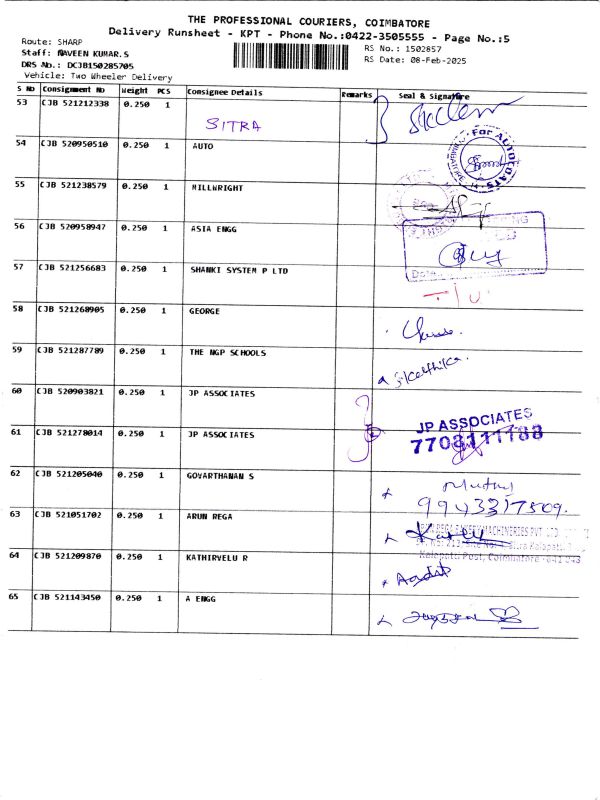 THE PROFESSIONAL COURIERS, COIMBATORE
Delivery Runsheet - KPT - Phone No.:0422-3505555 - Page No.:5
Route: SHARP
Staff: NAVEEN KUMAR.S
DRS No.: DCJB150285705
Vehicle: Two Wheeler Delivery
RS No.: 1502857
RS Date: 08-Feb-2025
S No Consignment No Weight PCS Consignee Details Remarks Seal & signature
53 CJB 521212338 0.250 1 SITRA
54 CJB 520950510 0.250 1 AUTO
For AUTOCOATS
55 CJB 521238579 0.250 1 MILLWRIGHT
56 CJB 520958947 0.250 1 ASIA ENGG
57 CJB 521256683 0.250 1 SHANKI SYSTEM P LTD
Date
58 CJB 521268905 0.250 1 GEORGE
59 CJB 521287789 0.250 1 THE NGP SCHOOLS
S.Karthika
60 CJB 520903821 0.250 1 JP ASSOCIATES
61 CJB 521278014 0.250 1 JP ASSOCIATES
JP ASSOCIATES
7708111188
62 CJB 521205040 0.250 1 GOVARTHANAN S
9943317509.
63 CJB 521051702 0.250 1 ARUN REGA
MACHINERIES PVT LTD
64 CJB 521209870 0.250 1 KATHIRVELU R
Post, Coimbatore - 641
65 CJB 521143450 0.250 1 A ENGG